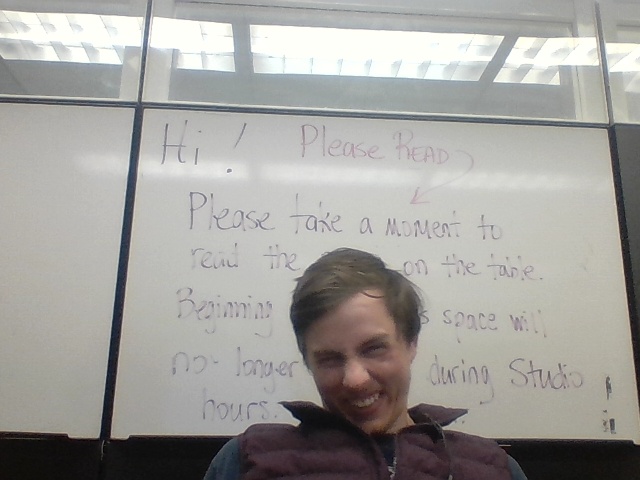 Hi! Please READ
Please take a moment to
read the on the table.
Beginning s space will
no longer during Studio
hours.